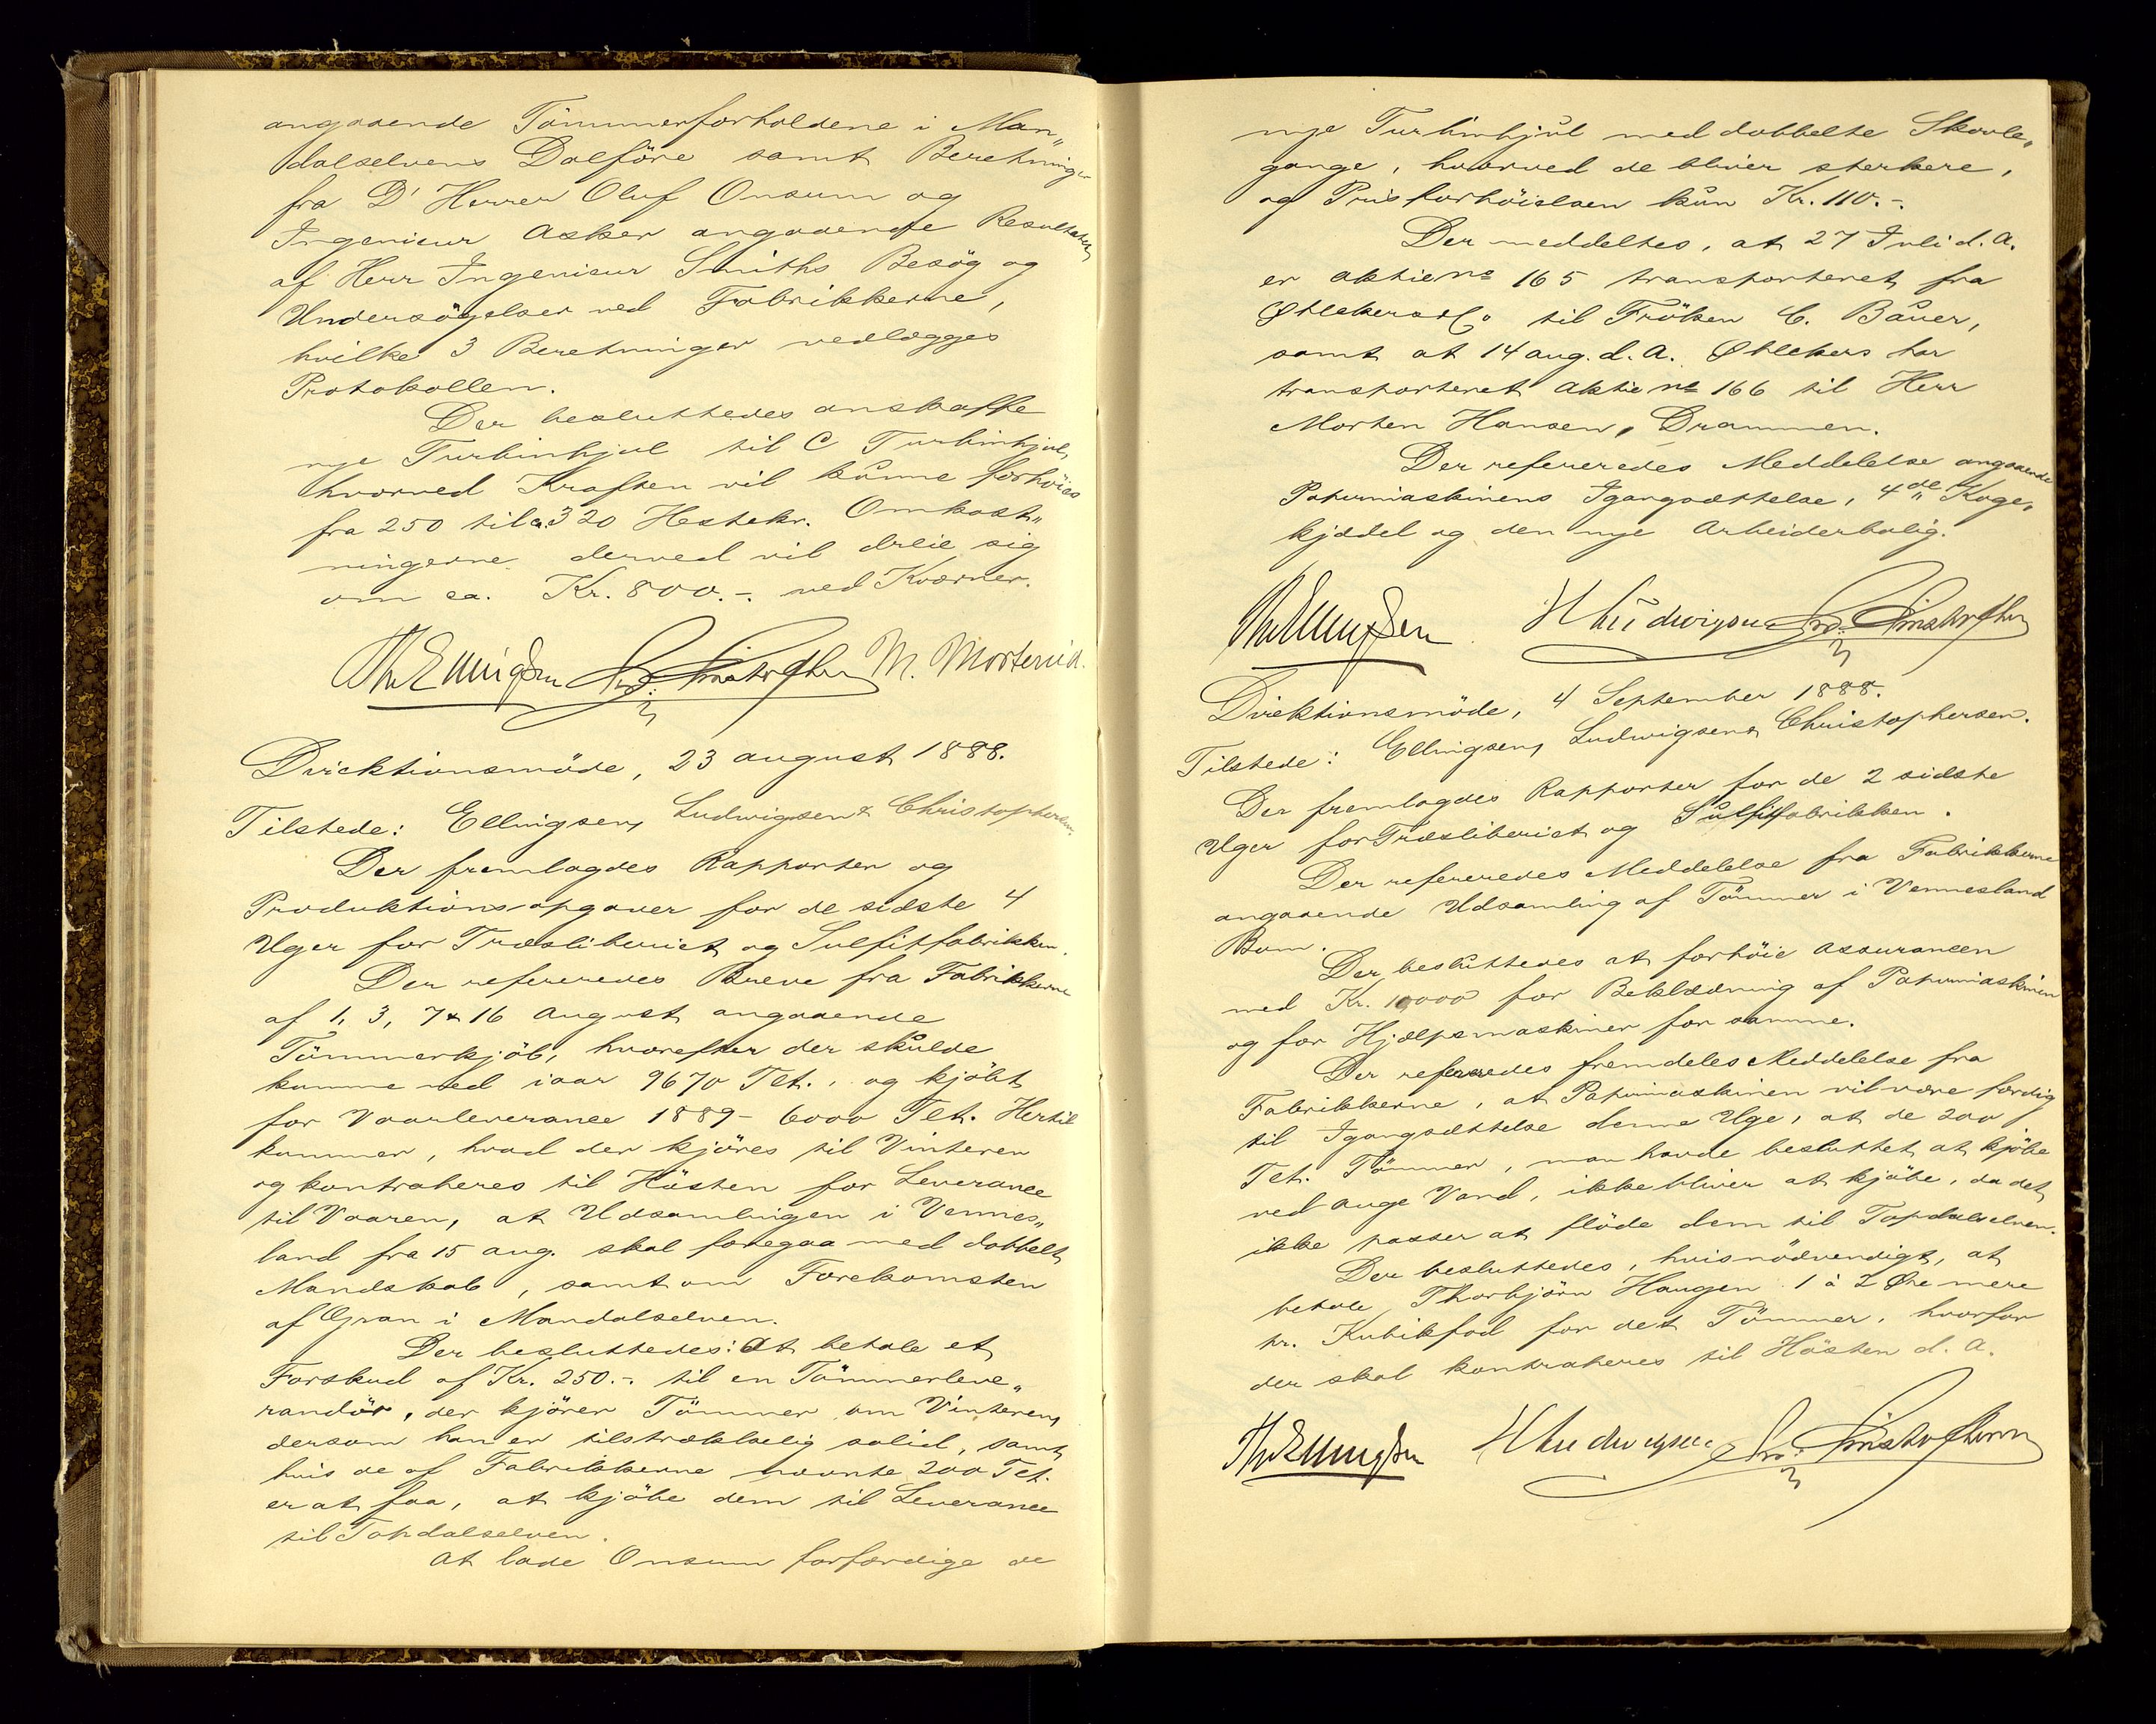 angaaende Tömmerforholdene i Man„
dalselvens Dalföre samt Beretninger
fra D' Herrer Oluf Onsum og
Ingenieur Asker angaaende Resultatet
af Herr Ingenieur Smiths Besög og
Undersögelser ved Fabrikkerne,
hvilke 3 Beretninger vedlægges
Protokollen.
Der besluttedes anskaffe
nye Turbinhjul til C Turbinhjul,
hvorved Kraften vil kunne forhöies
fra 250 til ca. 320 Hestekr. Omkost„
ningerne derved vil dreie sig
om ca. Kr. 800.-. ved Kværner.
Th Ellingsen Chr. Christophersen M. Mortensen
Direktionsmöde, 23 august 1888.
Tilstede: Ellingsen, Ludwigsen & Christophersen.
Der fremlagdes Rapporter og
Produktionsopgaver for de sidste 4
Uger for Træsliberiet og Sulfitfabrikken.
Der refereredes Breve fra Fabrikkerne
af 1, 3, 7 & 16 August angaaende
Tömmerkjöb, hvorefter der skulde
komme ned iaar 9670 Tlt., og kjöbt
for Vaarleverance 1889 - 6000 Tlt. Hertil
kommer, hvad der kjöres til Vinteren
og kontraheres til Hösten for Leverance
til Vaaren, at Udsamlingen i Vennes„
land fra 15 aug. skal foregaa med dobbelt
Mandskab, samt om Forekomsten
af Gran i Mandalselven.
Der besluttedes: At betale et
Forskud af Kr. 250.-. til en Tömmerleve„
randör, der kjörer Tömmer om Vinteren,
dersom han er tilstrækkelig solid, samt
hvis de af Fabrikkerne nævnte 200 Tlt.
er at faa, at kjöbe dem til Leverance
til Topdalselven.
At lade Onsum forfærdige de
nye Turbinhjul med dobbelte Skovle„
gange, hvorved de bliver sterkere,
og Prisforhöielsen kun Kr. 110.-.
Der meddeltes, at 27 Juli d. A.
er aktie No 165 transporteret fra
& Co til Fröken C. Bauer,
samt at 14 aug. d. A. har
transporteret Aktie No 166 til Herr
Morten Hansen, Drammen.
Der refereredes Meddelelse angaaende
Papirmaskinens Igangsættelse, 4de Koge„
kjædel og den nye Arbeiderbolig.
Th Ellingsen H Ludwigsen Chr. Christophersen
Direktionsmöde, 4 September 1888.
Tilstede: Ellingsen, Ludwigsen & Christophersen.
Der fremlagdes Rapporter for de 2 sidste
Uger for Træsliberiet og Sulfitfabrikken.
Der refereredes Meddelelse fra Fabrikkerne
angaaende Udsamling af Tömmer i Vennesland
Bom.
Der besluttedes at forhöie Assurancen
med Kr. 10000 for Beklædning af Papirmaskinen
og for Hjælpsmaskiner for samme.
Der refereredes fremdeles Meddelelse fra
Fabrikkerne, at Papirmaskinen vil være færdig
til Igangsættelse denne Uge, at de 200
Tlt. Tömmer, man havde besluttet at kjöbe
ved Auge Vand, ikke bliver at kjöbe, da det
ikke passer at flöde dem til Topdalselven.
Der besluttedes, hvis nödvendigt, at
betale Thorbjörn Haugen 1 à 2 Øre mere
pr. Kubikfod for det Tömmer, hvorfor
der skal kontraheres til Hösten d. A.
Th Ellingsen H Ludwigsen Chr. Christophersen